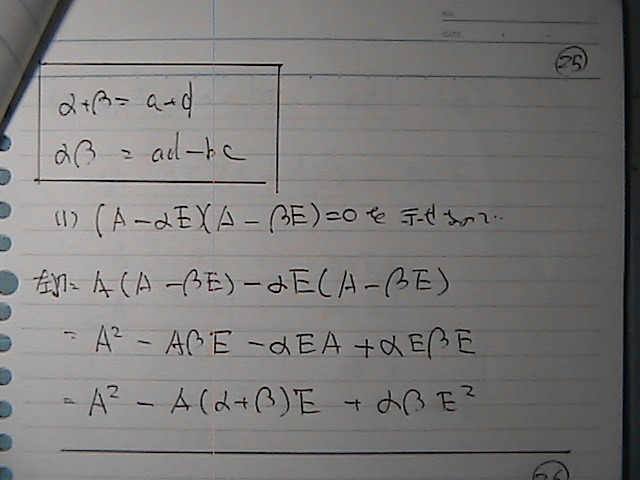 NO.
DATE
25
α+β = a+d
αβ = ad-bc
(1) (A-αE)(A-βE)=0を示せ
左辺= A(A-βE)-αE(A-βE)
= A² - AβE - αEA + αEβE
= A² - A(α+β)E + αβE²
26